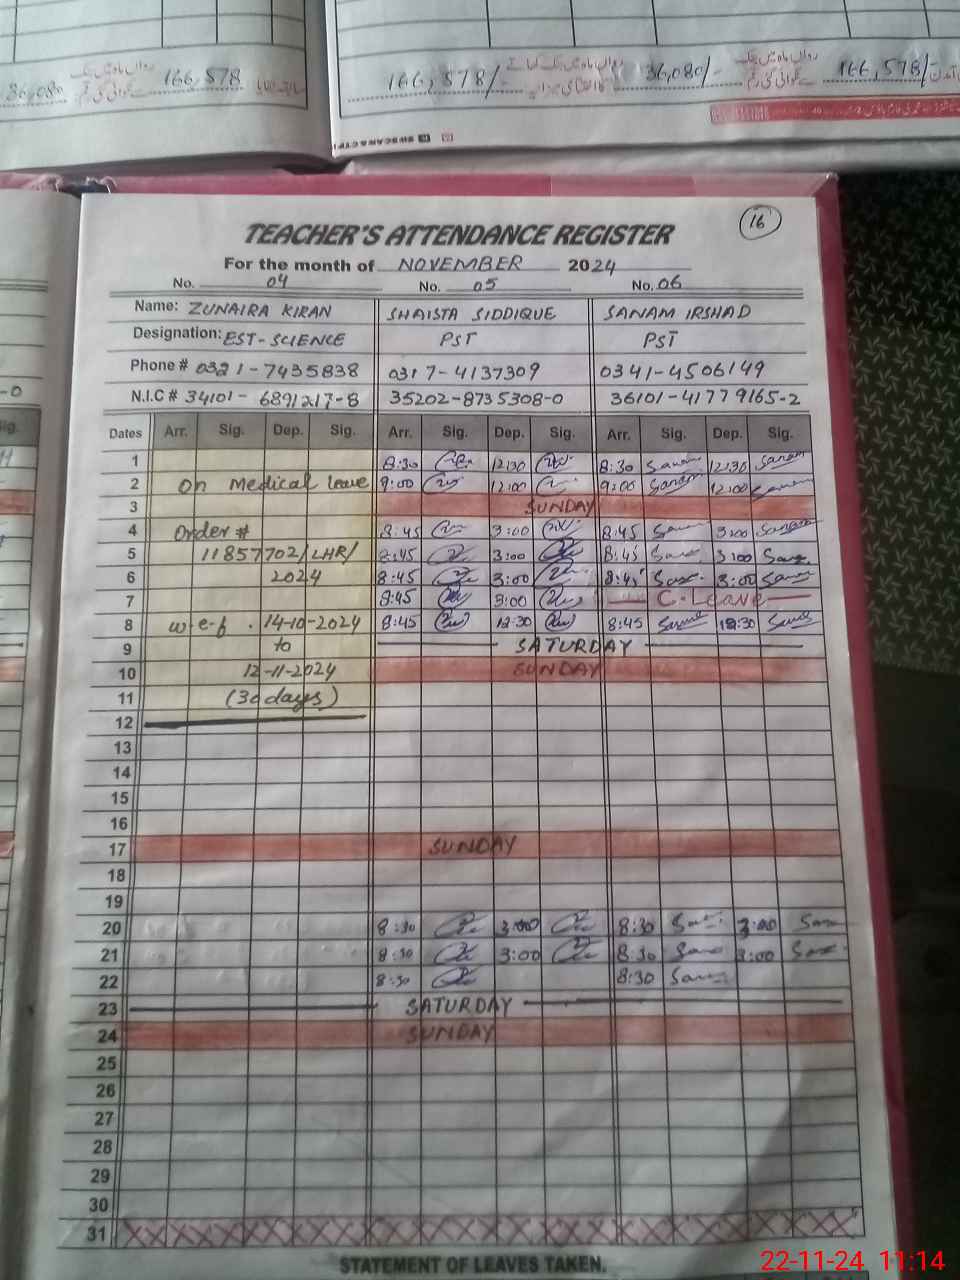 36,080 رواں ماہ میں بینک سے نکلوائی گئی رقم 166,578
166,578/- رواں ماہ میں بینک 36,080/- رواں ماہ میں بینک سے نکلوائی گئی رقم 166,578/-
TEACHER'S ATTENDANCE REGISTER 16
For the month of NOVEMBER 2024
No. 04 No. 05 No. 06
Name: ZUNAIRA KIRAN SHAISTA SIDDIQUE SANAM IRSHAD
Designation: EST-SCIENCE PST PST
Phone # 0321-7435838 0317-4137309 0341-4506149
N.I.C # 34101-6891217-8 35202-8735308-0 36101-41779165-2
Dates Arr. Sig. Dep. Sig. Arr. Sig. Dep. Sig. Arr. Sig. Dep. Sig.
1 8:30 12:30 8:30 Sanam 12:30 Sanam
2 On Medical leave 9:00 12:00 9:00 Sanam 12:00 Sanam
3 SUNDAY
4 Order # 8:45 3:00 8:45 3:00 Sanam
5 11857702/LHR/ 8:45 3:00 8:45 3:00
6 2024 8:45 3:00 8:45 3:00
7 8:45 3:00 C.Leave
8 w-e-f. 14-10-2024 8:45 12:30 8:45 12:30
9 to SATURDAY
10 12-11-2024 SUNDAY
11 (30 days)
12
13
14
15
16
17 SUNDAY
18
19
20 8:30 3:00 8:30 3:00
21 8:30 3:00 8:30 3:00
22 8:30 8:30
23 SATURDAY
24 SUNDAY
25
26
27
28
29
30
31
STATEMENT OF LEAVES TAKEN.
22-11-24 11:14